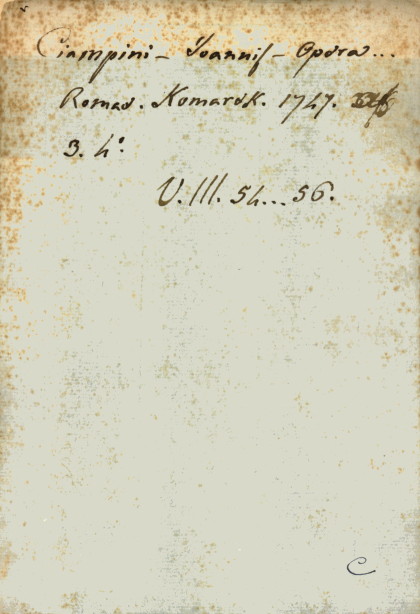 Ciampini - Joannis - Opera...
Romae. Komarek. 1747.
3. 4°.
V. III. 54...56.
C